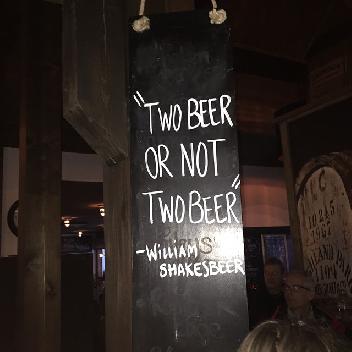 "TWO BEER
OR NOT
TWO BEER"
-WILLIAM
SHAKESBEER